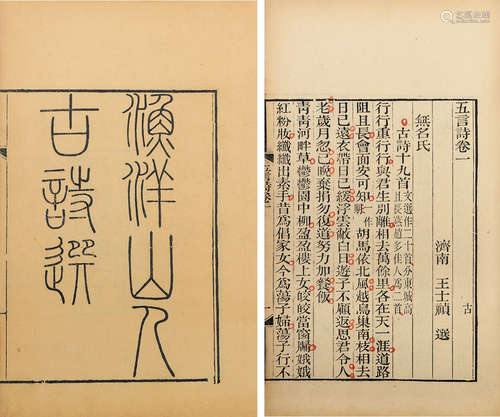 漁洋山人
古詩選
五言詩卷一
古
濟南 王士禎 選
無名氏
古詩十九首 文選作二十首分東城高且長燕趙多佳人為二首
行行重行行與君生別離相去萬餘里各在天一涯道路
阻且長會面安可知 一作 胡馬依北風越鳥巢南枝相去
日已遠衣帶日已緩浮雲蔽白日遊子不顧返思君令人
老歲月忽已晚棄捐勿復道努力加餐飯
青青河畔草鬱鬱園中柳盈盈樓上女皎皎當窗牖娥娥
紅粉妝纖纖出素手昔為倡家女今為蕩子婦蕩子行不